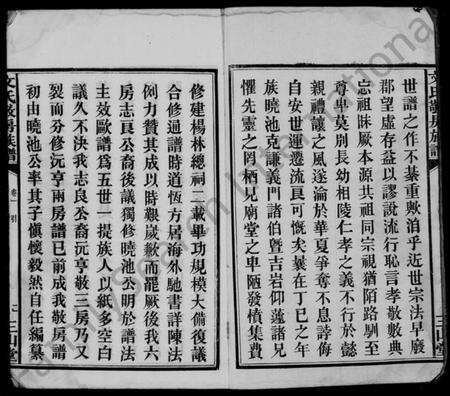 世譜之作不綦重歟洎乎近世宗法早廢
郡望虛存益以謬說流行恥言孝敬數典
忘祖眛厥本源共祖同宗視猶陌路馴至
尊卑莫別長幼相陵仁孝之義不行於懿
親禮讓之風遂淪於華夏爭奪不息誶侮
自安世運遷流良可慨矣曩在丁巳之年
族曉池克謙義門諸伯曁吉岩仰蓮諸兄
懼先靈之罔栖見廟堂之卑陋發憤集費
三山堂
修建楊林總祠二載畢功規模大備復議
合修通譜時道恆方居海外馳書詳陳法
例力贊其成以時艱歲歉而罷厥後我六
房志良公裔後議獨修曉池公明於譜法
主效歐譜爲五世一提族人以紙多空白
議久不決我志良公裔沅亨敬三房乃又
裂而分修沅亨兩房譜已前成我敬房譜
初由曉池公率其子愼懷毅然自任編纂
文氏敬房族譜
卷一 引
三山堂